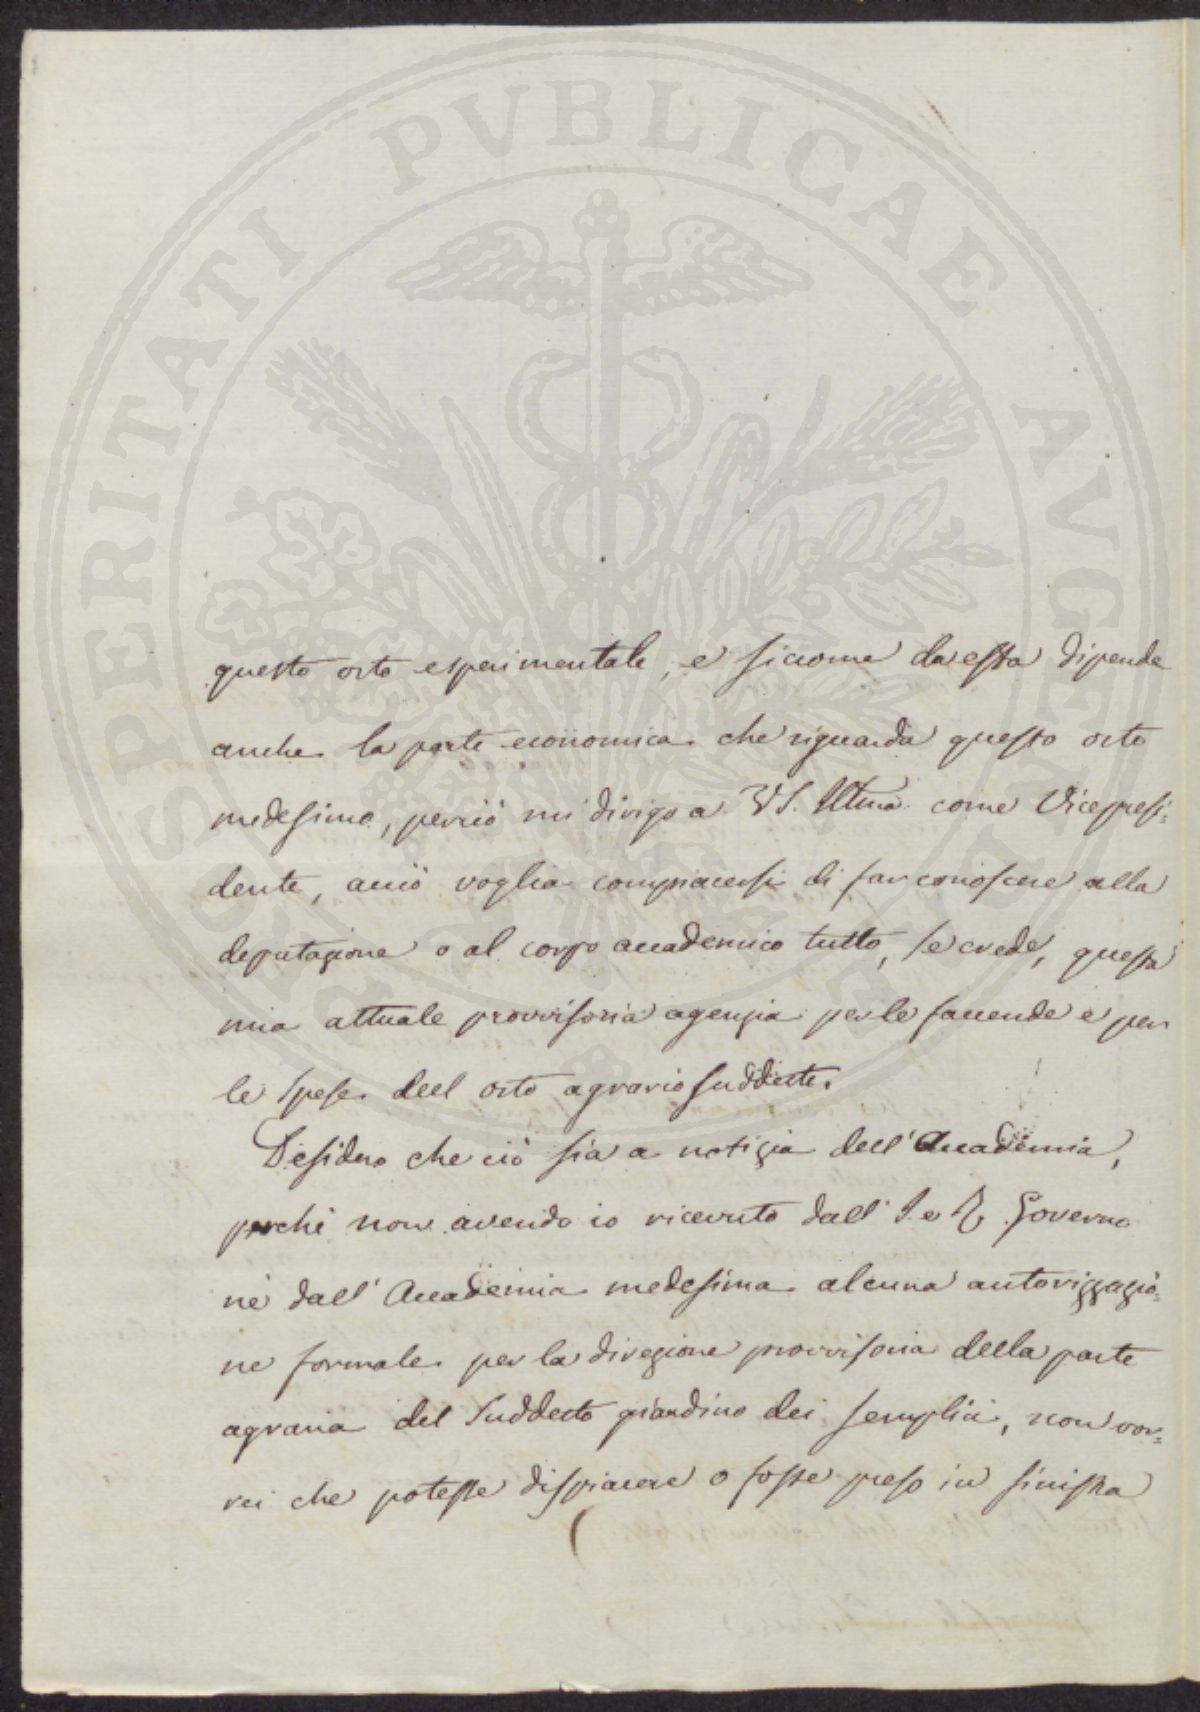 PROSPERITATI PVBLICAE AVGENDAE
questo orto esperimentale, e siccome da essa dipende
anche la parte economica che riguarda questo orto
medesimo, perciò mi dirigo a VS. Illma come Vicepresi=
dente, acciò voglia compiacersi di far conoscere alla
deputazione o al corpo accademico tutto, se crede, questa
mia attuale provvisoria agenzia per le faccende e per
le spese dell orto agrario suddetto.
Desidero che ciò sia a notizia dell'Accademia,
perchè non avendo io ricevuto dall' I. e R. Governo
nè dall' Accademia medesima alcuna autorizzazio=
ne formale per la direzione provvisoria della parte
agraria del suddetto giardino dei semplici, non vor=
rei che potesse dispiacere o fosse preso in sinistra